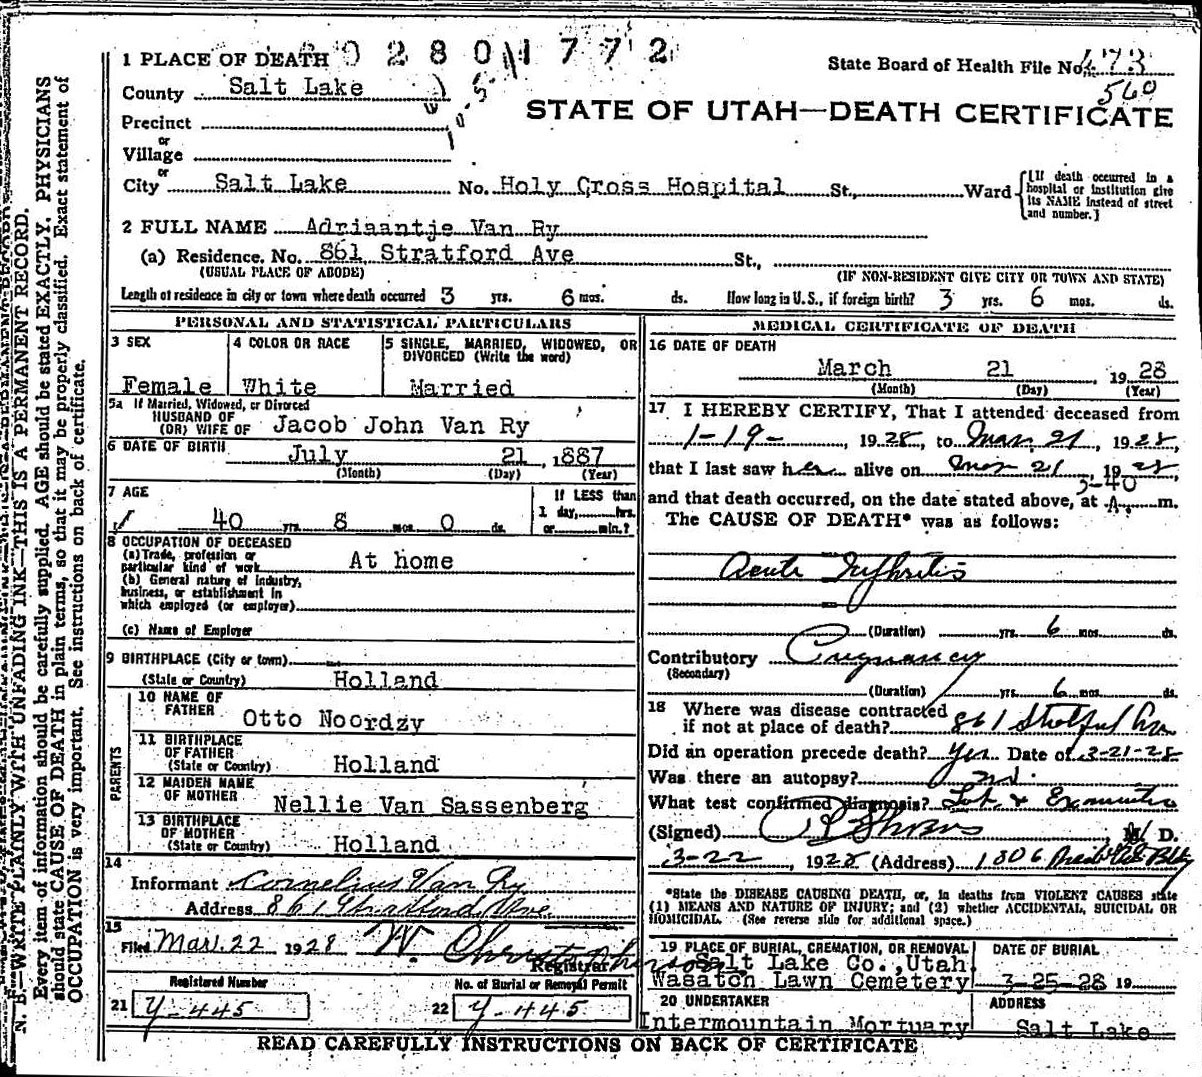 1 PLACE OF DEATH 0 2 8 0 1 7 7 2
State Board of Health File No. 473
560
County Salt Lake
STATE OF UTAH—DEATH CERTIFICATE
Precinct
or
Village
or
City Salt Lake No. Holy Cross Hospital St., Ward {[If death occurred in a hospital or institution give its NAME instead of street and number.]
2 FULL NAME Adriaantje Van Ry
(a) Residence. No. 861 Stratford Ave St.,
(USUAL PLACE OF ABODE) (IF NON-RESIDENT GIVE CITY OR TOWN AND STATE)
Length of residence in city or town where death occurred 3 yrs. 6 mos. ds. How long in U. S., if foreign birth? 3 yrs. 6 mos. ds.
PERSONAL AND STATISTICAL PARTICULARS
3 SEX
Female
4 COLOR OR RACE
White
5 SINGLE, MARRIED, WIDOWED, OR
DIVORCED (Write the word)
Married
5a If Married, Widowed, or Divorced
HUSBAND OF
(OR) WIFE OF Jacob John Van Ry
6 DATE OF BIRTH July 21, 1887
(Month) (Day) (Year)
7 AGE
40 yrs. 8 mos. 0 ds.
If LESS than
1 day, hrs.
or min.?
8 OCCUPATION OF DECEASED
(a) Trade, profession or
particular kind of work At home
(b) General nature of industry,
business, or establishment in
which employed (or employer)
(c) Name of Employer
9 BIRTHPLACE (City or town)
(State or Country) Holland
PARENTS
10 NAME OF
FATHER Otto Noordzy
11 BIRTHPLACE
OF FATHER
(State or Country) Holland
12 MAIDEN NAME
OF MOTHER Nellie Van Sassenberg
13 BIRTHPLACE
OF MOTHER
(State or Country) Holland
14
Informant Cornelius Van Ry
Address 861 Stratford Ave.
15
Filed Mar. 22 1928 W. Christopherson
Registrar
Registered Number
21 Y-445
No. of Burial or Removal Permit
22 Y-445
MEDICAL CERTIFICATE OF DEATH
16 DATE OF DEATH
March 21, 1928
(Month) (Day) (Year)
17 I HEREBY CERTIFY, That I attended deceased from
1-19-, 1928, to Mar. 21, 1928,
that I last saw her alive on Mar 21, 1928
3-40
and that death occurred, on the date stated above, at A. m.
The CAUSE OF DEATH* was as follows:
Acute Nephritis
(Duration) yrs. 6 mos. ds.
Contributory Pregnancy
(Secondary)
(Duration) yrs. 6 mos. ds.
18 Where was disease contracted
if not at place of death? 861 Stratford Ave
Did an operation precede death? Yes Date of 3-21-28
Was there an autopsy? No.
What test confirmed diagnosis? Lab. & Examination
(Signed) M. D.
3-22, 1928 (Address) 1306
*State the DISEASE CAUSING DEATH, or, in deaths from VIOLENT CAUSES state
(1) MEANS AND NATURE OF INJURY; and (2) whether ACCIDENTAL, SUICIDAL OR
HOMICIDAL. (See reverse side for additional space.)
19 PLACE OF BURIAL, CREMATION, OR REMOVAL
Salt Lake Co., Utah
Wasatch Lawn Cemetery
DATE OF BURIAL
3-25-28 19
20 UNDERTAKER
Intermountain Mortuary
ADDRESS
Salt Lake
READ CAREFULLY INSTRUCTIONS ON BACK OF CERTIFICATE
N. B.—WRITE PLAINLY WITH UNFADING INK—THIS IS A PERMANENT RECORD.
Every item of information should be carefully supplied. AGE should be stated EXACTLY. PHYSICIANS
should state CAUSE OF DEATH in plain terms, so that it may be properly classified. Exact statement of
OCCUPATION is very important. See instructions on back of certificate.